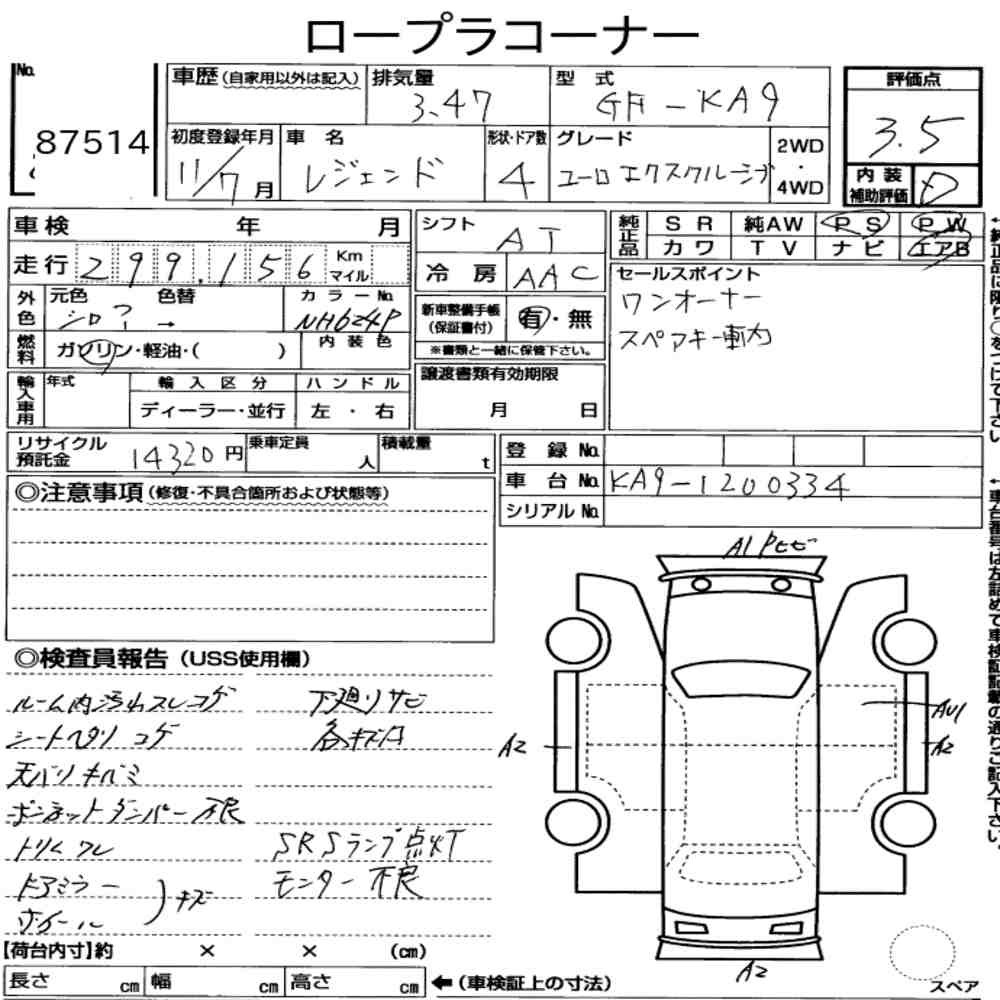 ロープラコーナー
No.
87514
車歴（自家用以外は記入）
排気量
3.47
型式
GF-KA9
評価点
3.5
初度登録年月
11/7月
車名
レジェンド
形状・ドア数
4
グレード
ユーロ エクスクルーシブ
2WD
・
4WD
内装
補助評価
D
車検 年 月
走行 299.156 Km
マイル
シフト
AT
冷房
AAC
純正品
SR 純AW PS PW
カワ TV ナビ エアB
セールスポイント
ワンオーナー
スペアキー車内
外色
元色 色替
シロ →
カラーNo.
NH624P
新車整備手帳
（保証書付）
有・無
※書類と一緒に保管下さい。
燃料
ガソリン・軽油・( )
内装色
輸入車用
年式
輸入区分
ディーラー・並行
ハンドル
左・右
譲渡書類有効期限
月 日
リサイクル
預託金
14320円
乗車定員
人
積載量
t
登録No.
車台No. KA9-1200334
シリアルNo.
◎注意事項（修復・不具合箇所および状態等）
◎検査員報告（USS使用欄）
ルーム内汚れスレコゲ
シートヘタリ コゲ
天バリ キバミ
ボンネットダンパー不良
トリムワレ
ドアミラー
ホイール
キズ
下廻りサビ
各キズ凹
SRSランプ点灯
モニター不良
A1 Pヒビ
A2
AU1
A2
A2
スペア
【荷台内寸】約 × × (cm)
長さ cm 幅 cm 高さ cm
←（車検証上の寸法）
←純正品に限り○をつけて下さい。
←車台番号は左詰めで車検証記載の通りご記入下さい。